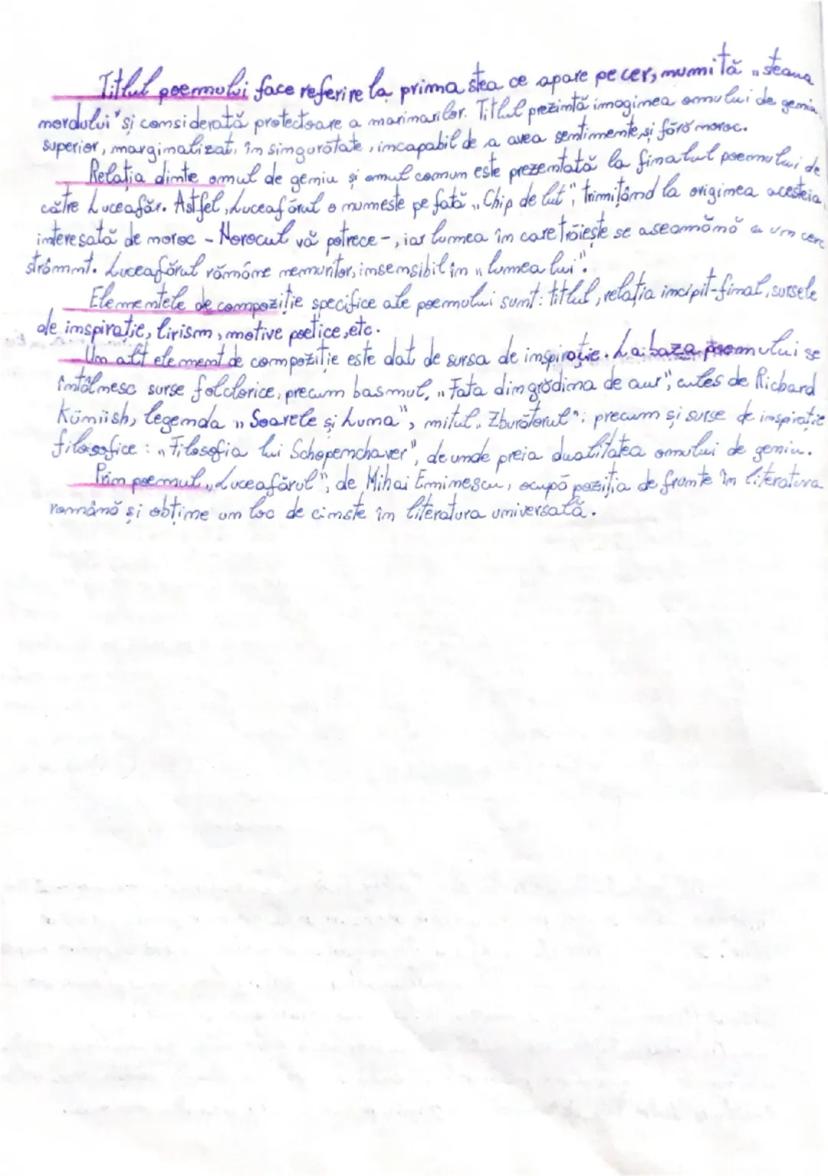 Titlul poemului face referire la prima stea ce apare pe cer, numită „steaua
nordului" și considerată protectoare a marinarilor. Titlul prezintă imaginea omului de geniu
superior, marginalizat, în singurătate, incapabil de a avea sentimente și fără noroc.
Relația dintre omul de geniu și omul comun este prezentată la finalul poemului de
către Luceafăr. Astfel, Luceafărul o numește pe fată „Chip de lut", trimițând la originea acesteia,
interesată de noroc – Norocul vă petrece –, iar lumea în care trăiește se aseamănă cu un cerc
strâmmt. Luceafărul rămâne nemuritor, insensibil în „lumea lui".
Elementele de compoziție specifice ale poemului sunt: titlul, relația incipit-final, sursele
de inspirație, lirism, motive poetice, etc.
Um alt element de compoziție este dat de sursa de inspirație. La baza poemului se
întâlnesc surse folclorice, precum basmul, „Fata din grădina de aur", cules de Richard
Kümiish, legenda „Soarele și Luna", mitul „Zburătorul"; precum și surse de inspirație
filosofice: „Filosofia lui Schopenchaver", de unde preia dualitatea omului de geniu.
Prin poemul „Luceafărul", de Mihai Eminescu, ocupă poziția de frunte în literatura
română și obține un loc de cinste în literatura universală.